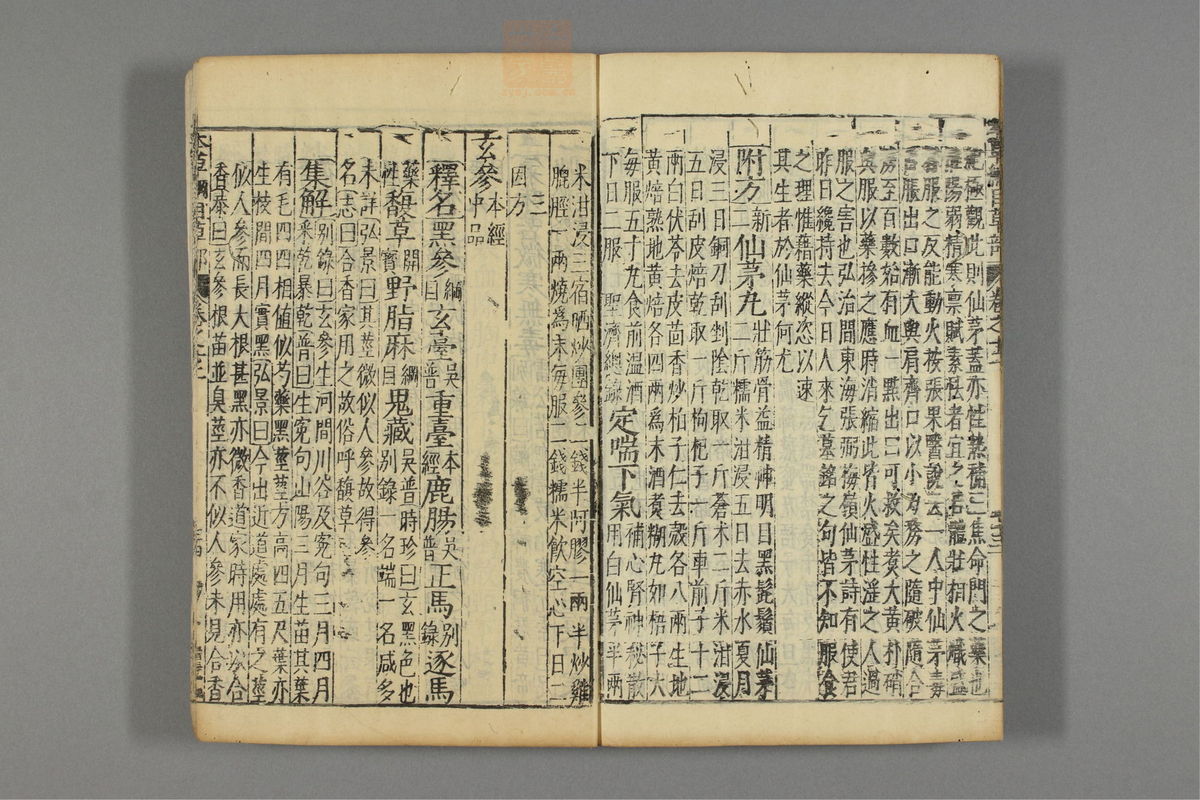 極觀此則仙茅蓋亦性熱補三焦命門之藥也
陽弱精寒稟賦素怯者宜之若體壯相火熾盛
服之反能動火按張果醫說云一人中仙茅毒
舌脹出口漸大與肩齊因以小刀剺之隨破隨合
至百數始有血一點出曰可救矣煮大黃朴硝
與服以藥摻之應時消縮此皆火盛性淫之人過
服之害也弘治間東海張弼梅嶺仙茅詩有使君
昨日纔持去今日人來乞墓銘之句皆不知服食
之理惟藉藥縱恣以速
其生者於仙茅何尤
附方新二仙茅丸壯筋骨益精神明目黑髭鬚仙茅
二斤糯米泔浸五日去赤水夏月
浸三日銅刀刮剉陰乾取一斤蒼朮二斤米泔浸
五日刮皮焙乾取一斤枸杞子一斤車前子十二
兩白伏苓去皮茴香炒柏子仁去殼各八兩生地
黃焙熟地黃焙各四兩為末酒煮糊丸如梧子大
每服五十丸食前溫酒
下日二服 聖濟總錄定喘下氣補心腎神秘散
用白仙茅半兩
米泔浸三宿晒炒團參二錢半阿膠一兩半炒雞
膍胵一兩燒為末每服二錢糯米飲空心下日二
三因方
玄參本經中品
釋名黑參綱目玄臺吳普重臺本經鹿腸吳普正馬別錄逐馬
藥性馥草開寶野脂麻綱目鬼藏吳普時珍曰玄黑色也
別錄一名端一名咸多
未詳弘景曰其莖微似人參故得參
名志曰合香家用之故俗呼馥草
集解別錄曰玄參生河間川谷及冤句三月四月
采根暴乾普曰生冤句山陽三月生苗其葉
有毛四四相值似芍藥黑莖莖方高四五尺葉亦
生枝間四月實黑弘景曰今出近道處處有之莖
似人參而長大根甚黑亦微香道家時用亦以合
香恭曰玄參根苗並臭莖亦不似人參未見合香
本草綱目草部 卷之十二